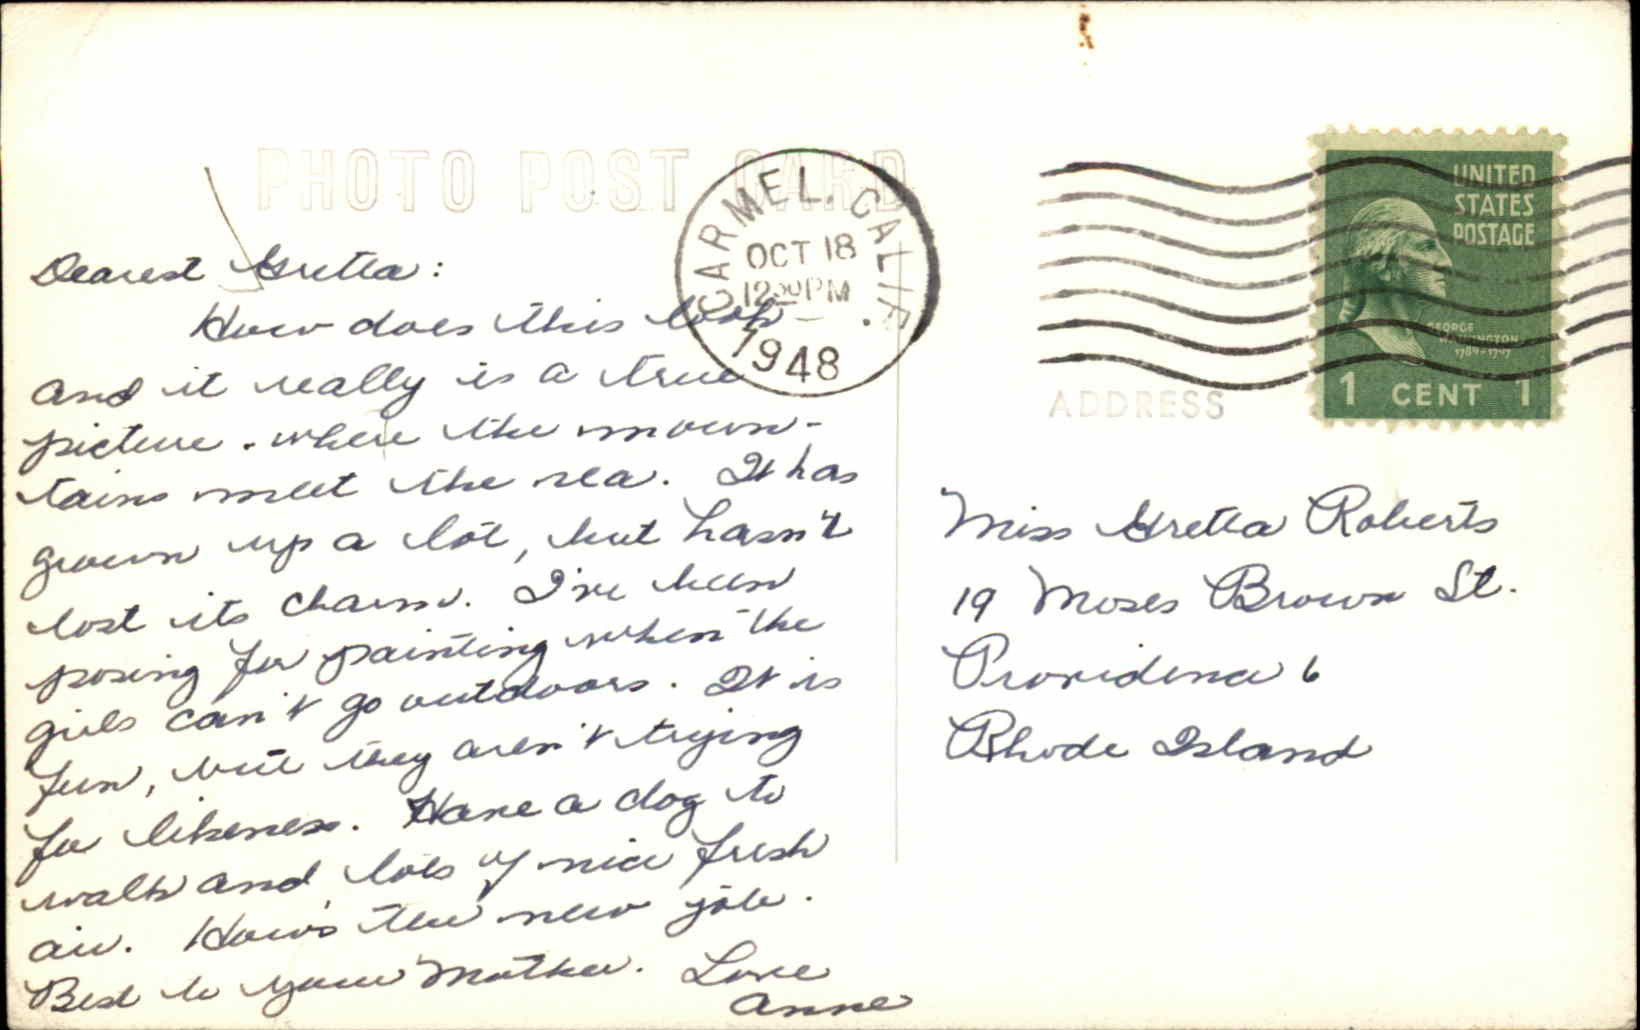 PHOTO POST CARD
CARMEL. CALIF.
OCT 18
12 30 PM
1948
UNITED
STATES
POSTAGE
GEORGE
WASHINGTON
1789-1797
1 CENT 1
ADDRESS
Dearest Gretta:
How does this look
and it really is a true
picture. where the moun-
tains meet the sea. It has
grown up a lot, but hasn't
lost its charm. I've been
posing for painting when the
girls can't go outdoors. It is
fun, but they aren't trying
for likeness. Have a dog to
walk and lots of nice fresh
air. How's the new job.
Best to your Mother. Love
Anne
Miss Gretta Roberts
19 Moses Brown St.
Providence 6
Rhode Island